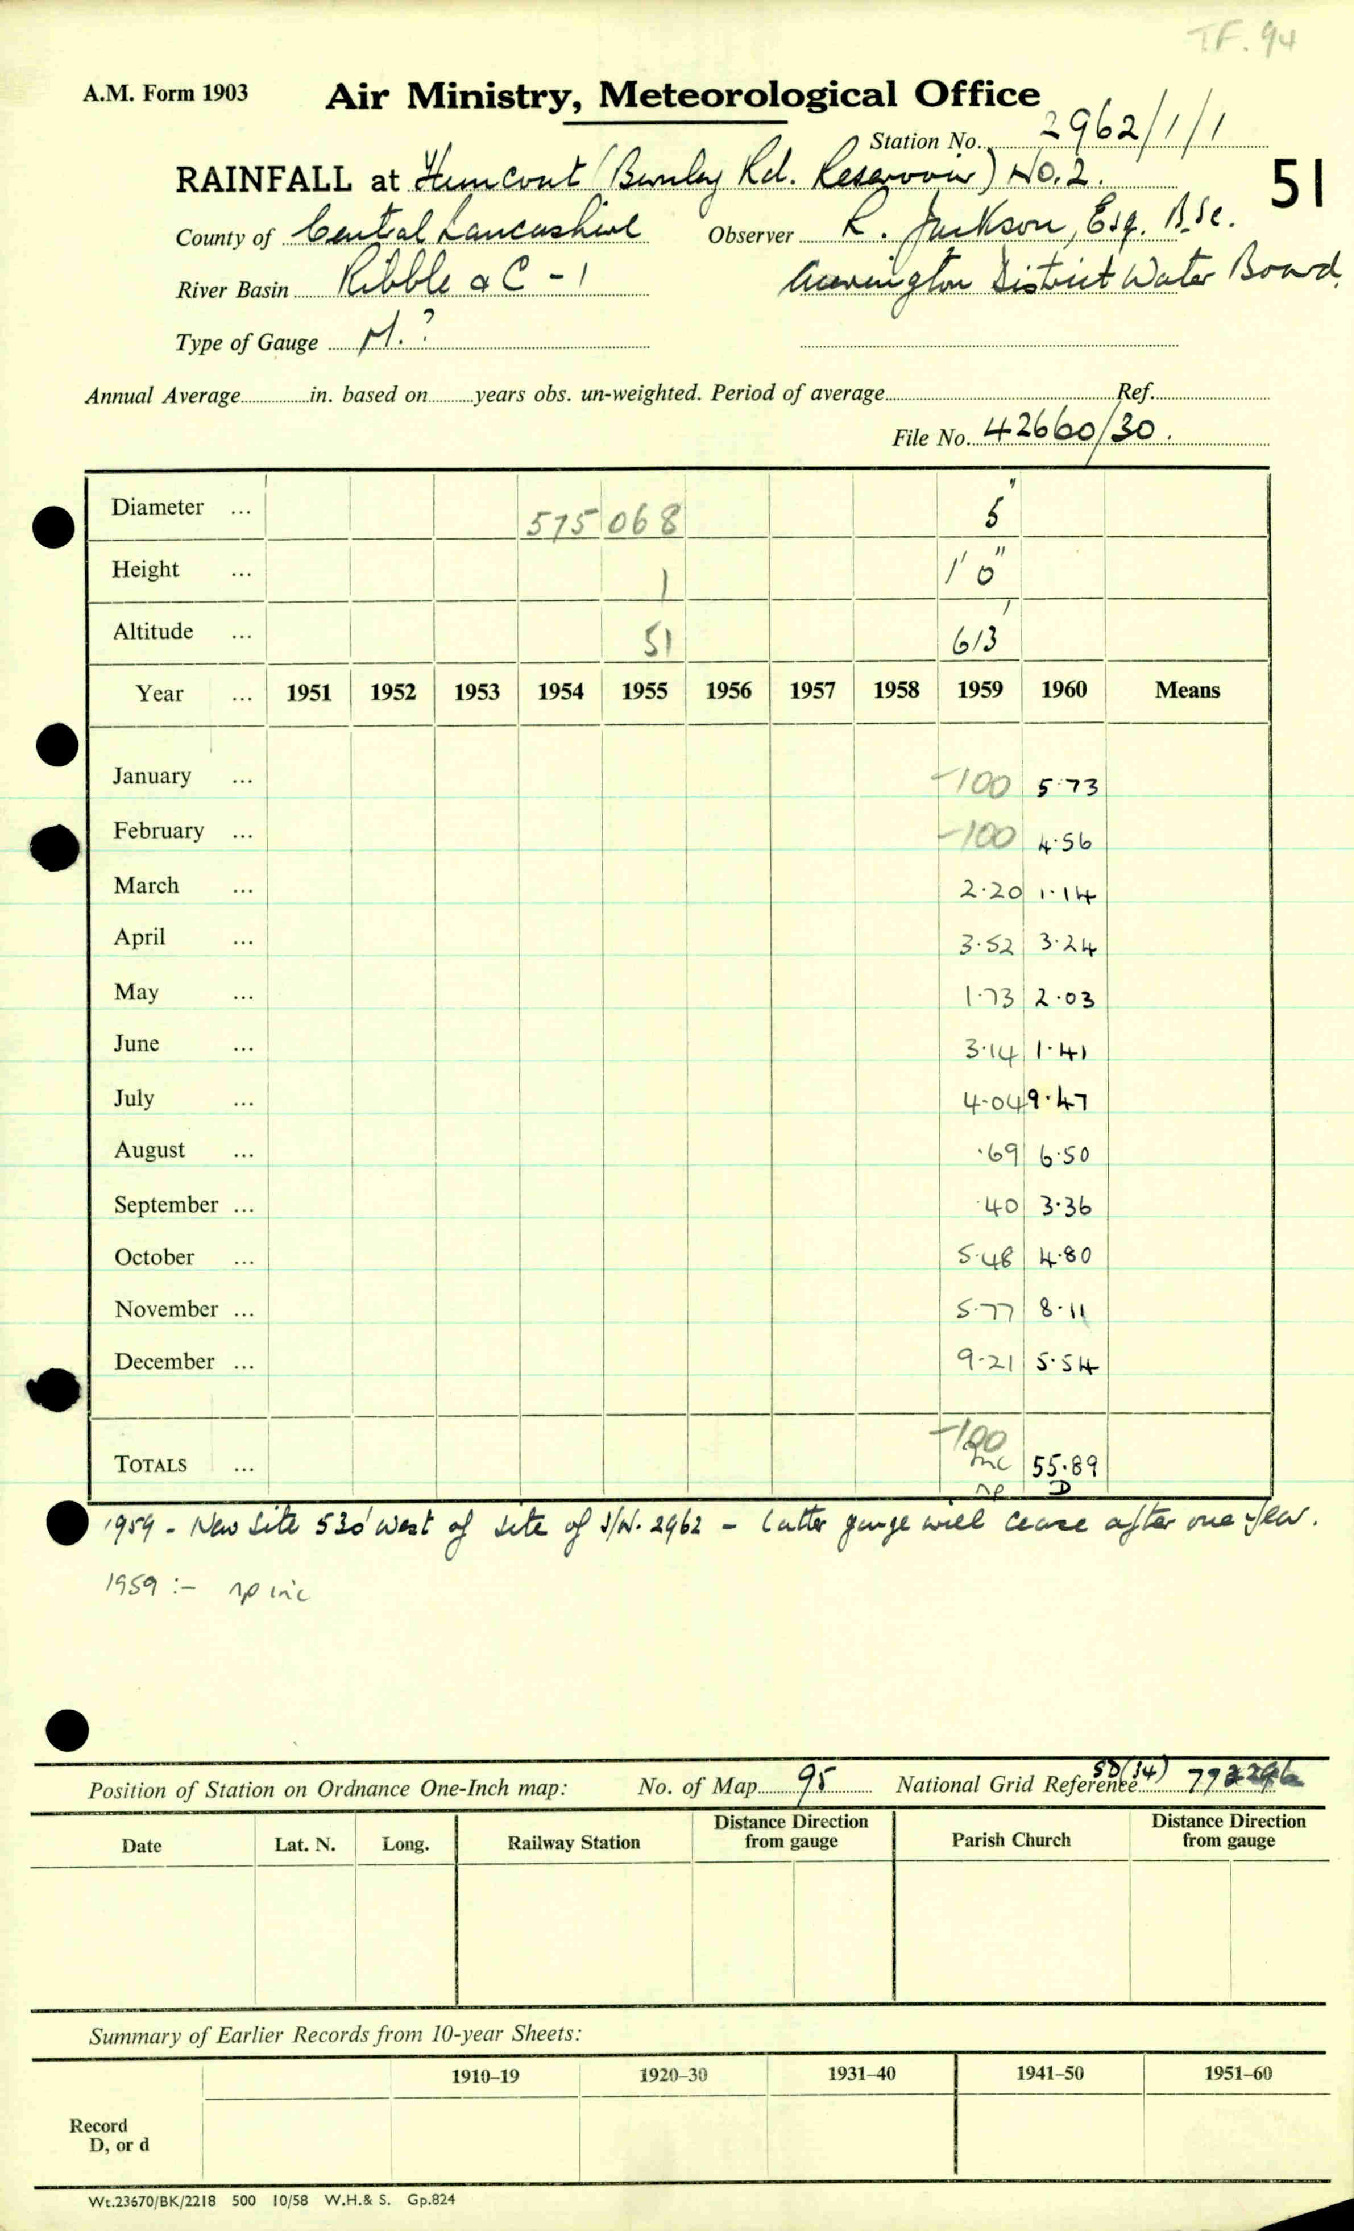 TF. 94
A.M. Form 1903 Air Ministry, Meteorological Office
Station No. 2962/1/1
RAINFALL at Huncoat (Burnley Rd. Reservoir) No. 2. 51
County of Central Lancashire Observer R. Jackson, Esq. B.Sc.
River Basin Ribble & C - 1 Accrington District Water Board.
Type of Gauge M. ?
Annual Average in. based on years obs. un-weighted. Period of average Ref.
File No. 42660/30.
Diameter ... 575 068 5"
Height ... 1 1' 0"
Altitude ... 51 613'
Year ... 1951 1952 1953 1954 1955 1956 1957 1958 1959 1960 Means
January ... -100 5.73
February ... -100 4.56
March ... 2.20 1.14
April ... 3.52 3.24
May ... 1.73 2.03
June ... 3.14 1.41
July ... 4.04 9.47
August ... .69 6.50
September ... .40 3.36
October ... 5.48 4.80
November ... 5.77 8.11
December ... 9.21 5.54
-100
TOTALS ... Inc 55.89
np D
1959 - New Site 530' West of site of S/N. 2962 - latter gauge will cease after one year.
1959 :- np inc
Position of Station on Ordnance One-Inch map: No. of Map 95 National Grid Reference SD(34)
Date Lat. N. Long. Railway Station Distance Direction from gauge Parish Church Distance Direction from gauge
Summary of Earlier Records from 10-year Sheets:
1910–19 1920–30 1931–40 1941–50 1951–60
Record
D, or d
Wt.23670/BK/2218 500 10/58 W.H.& S. Gp.824